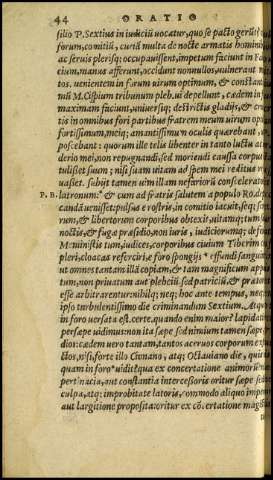 44 ORATIO
silio P. Sextius in iudiciũ uocatur, quo se pacto gerũt?
forum, comitiũ, curiã multa de nocte armatis hominib
ac seruis plerisq; occupauissent, impetum faciunt in Fa
cium, manus afferunt, occidunt nonnullos, uulnerant
tos. uenientem in forum uirum optimum, & constanti
mũ M. Cispium tribunum pleb. ui depellunt, cædem in
maximam faciunt, uniuersiq; destrictis gladijs, & cruẽ
tis in omnibus fori partibus fratrem meum uirum op
fortissimum, meiq; amantissimum oculis quærebant,
poscebant: quorum ille telis libenter in tanto luctu ac
derio mei, non repugnandi, sed moriendi caussa corpus
tulisset suum; nisi suam uitam ad spem mei reditus
uasset. subijt tamen uim illam nefariorũ consceleratorũ
P.R. latronum: * & cum ad fratris salutem a populo Ro. de
candã uenisset, pulsus e rostris, in comitio iacuit, seq;
rum, & libertorum corporibus obtexit, uitamq; tum
noctis, & fugæ præsidio, non iuris, iudiciorumq; de
Meministis tum, iudices, corporibus ciuium Tiberim
pleri, cloacas referciri, e foro spongijs * effundi sanguin
ut omnes tantam illã copiam, & tam magnificum appa
tum, non priuatum aut plebeiũ, sed patriciũ, & prætor
esse arbitrarentur. nihilq; neq; hoc ante tempus, neq;
ipso turbulentissimo die criminandum Sextium. Atqui
in foro uersata est. certe. quando enim maior? lapidatio
persæpe uidimus: non ita sæpe, sed nimium tamen sæpe
dios: cædem uero tantam, tantos aceruos corporum
ctos, nisi forte illo Cinnano, atq; Octauiano die, quis
quam in foro * uidit? qua ex concertatione animorũ
pertinacia, aut constantia intercessoris oritur sæpe
culpa, atq; improbitate latoris, commodo aliquo
aut largitione proposita: oritur ex cõcertatione magist